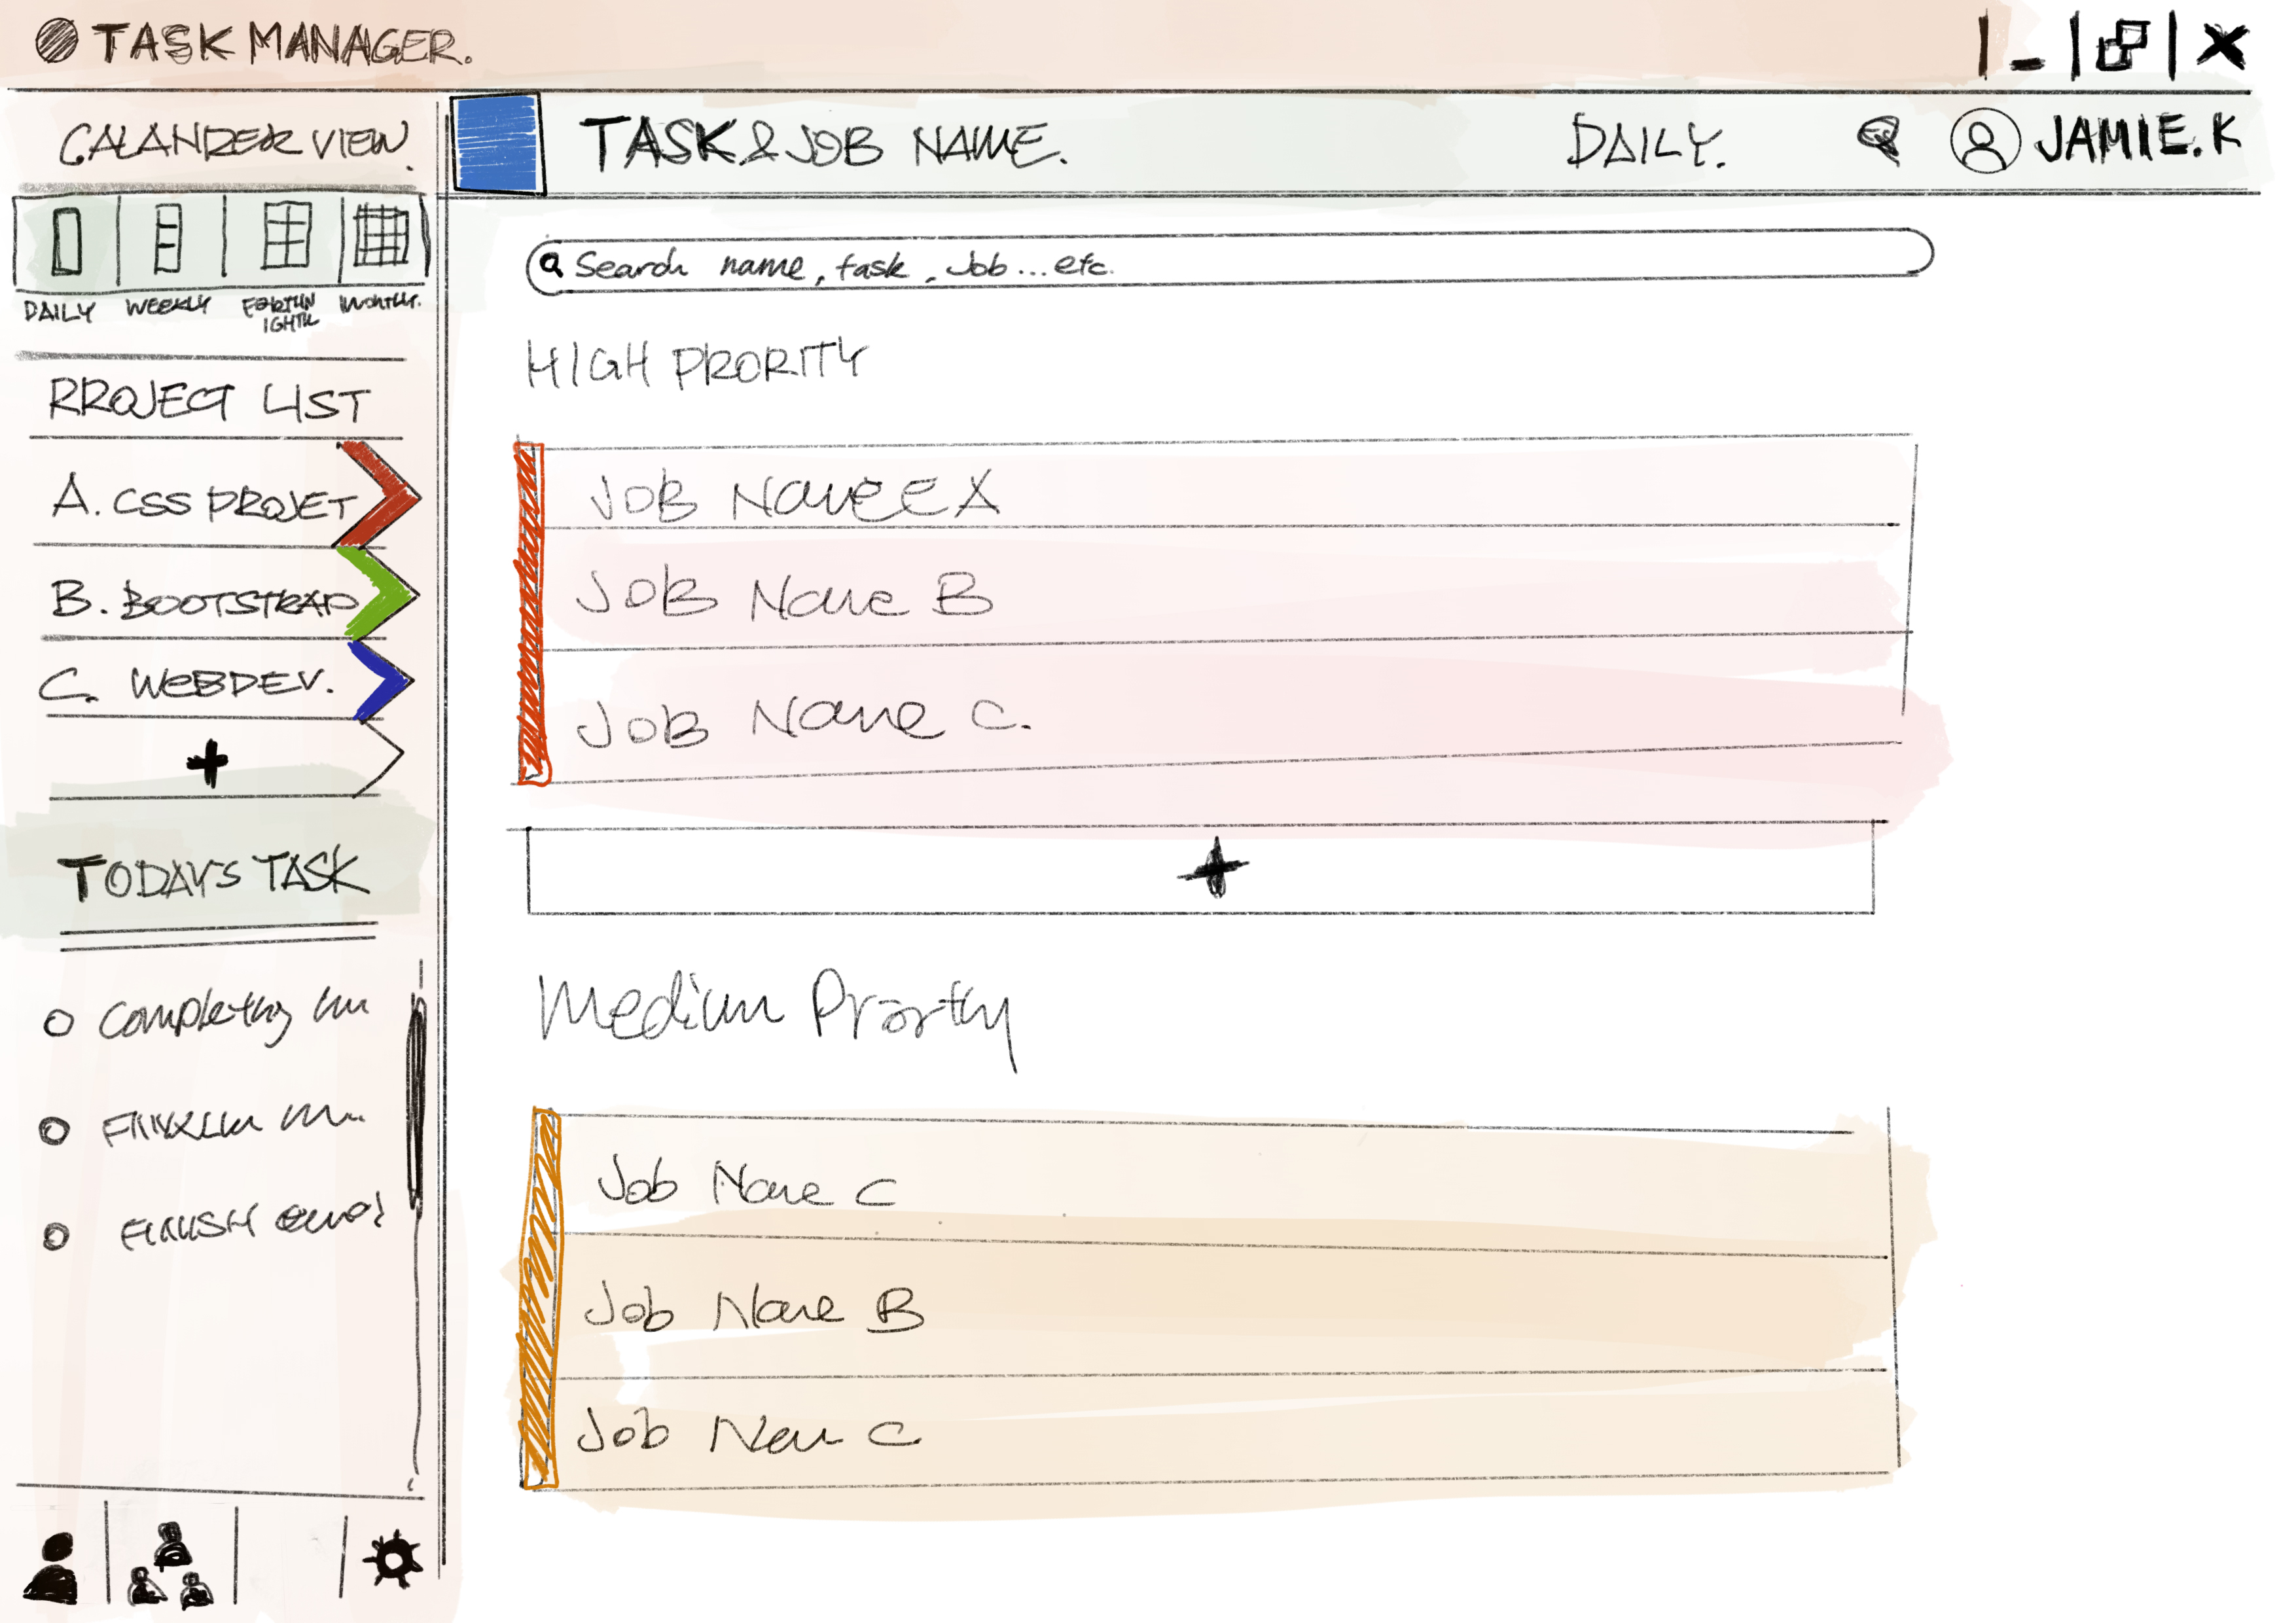 TASK MANAGER.
CALANDER VIEW.
DAILY WEEKLY FORTUN IGHTL MONTHLY.
RROJECT LIST
A. CSS PROJET
B. BOOTSTRAP
C. WEBDEV.
+
TODAYS TASK
Completing
FINISH
TASK & JOB NAME.
DAILY.
JAMIE.K
Search name, task, Job...etc.
HIGH PRORITY
JOB Name A
JOB Name B
JOB Name C.
+
Medium Prority
Job Name C
Job Name B
Job Nem C